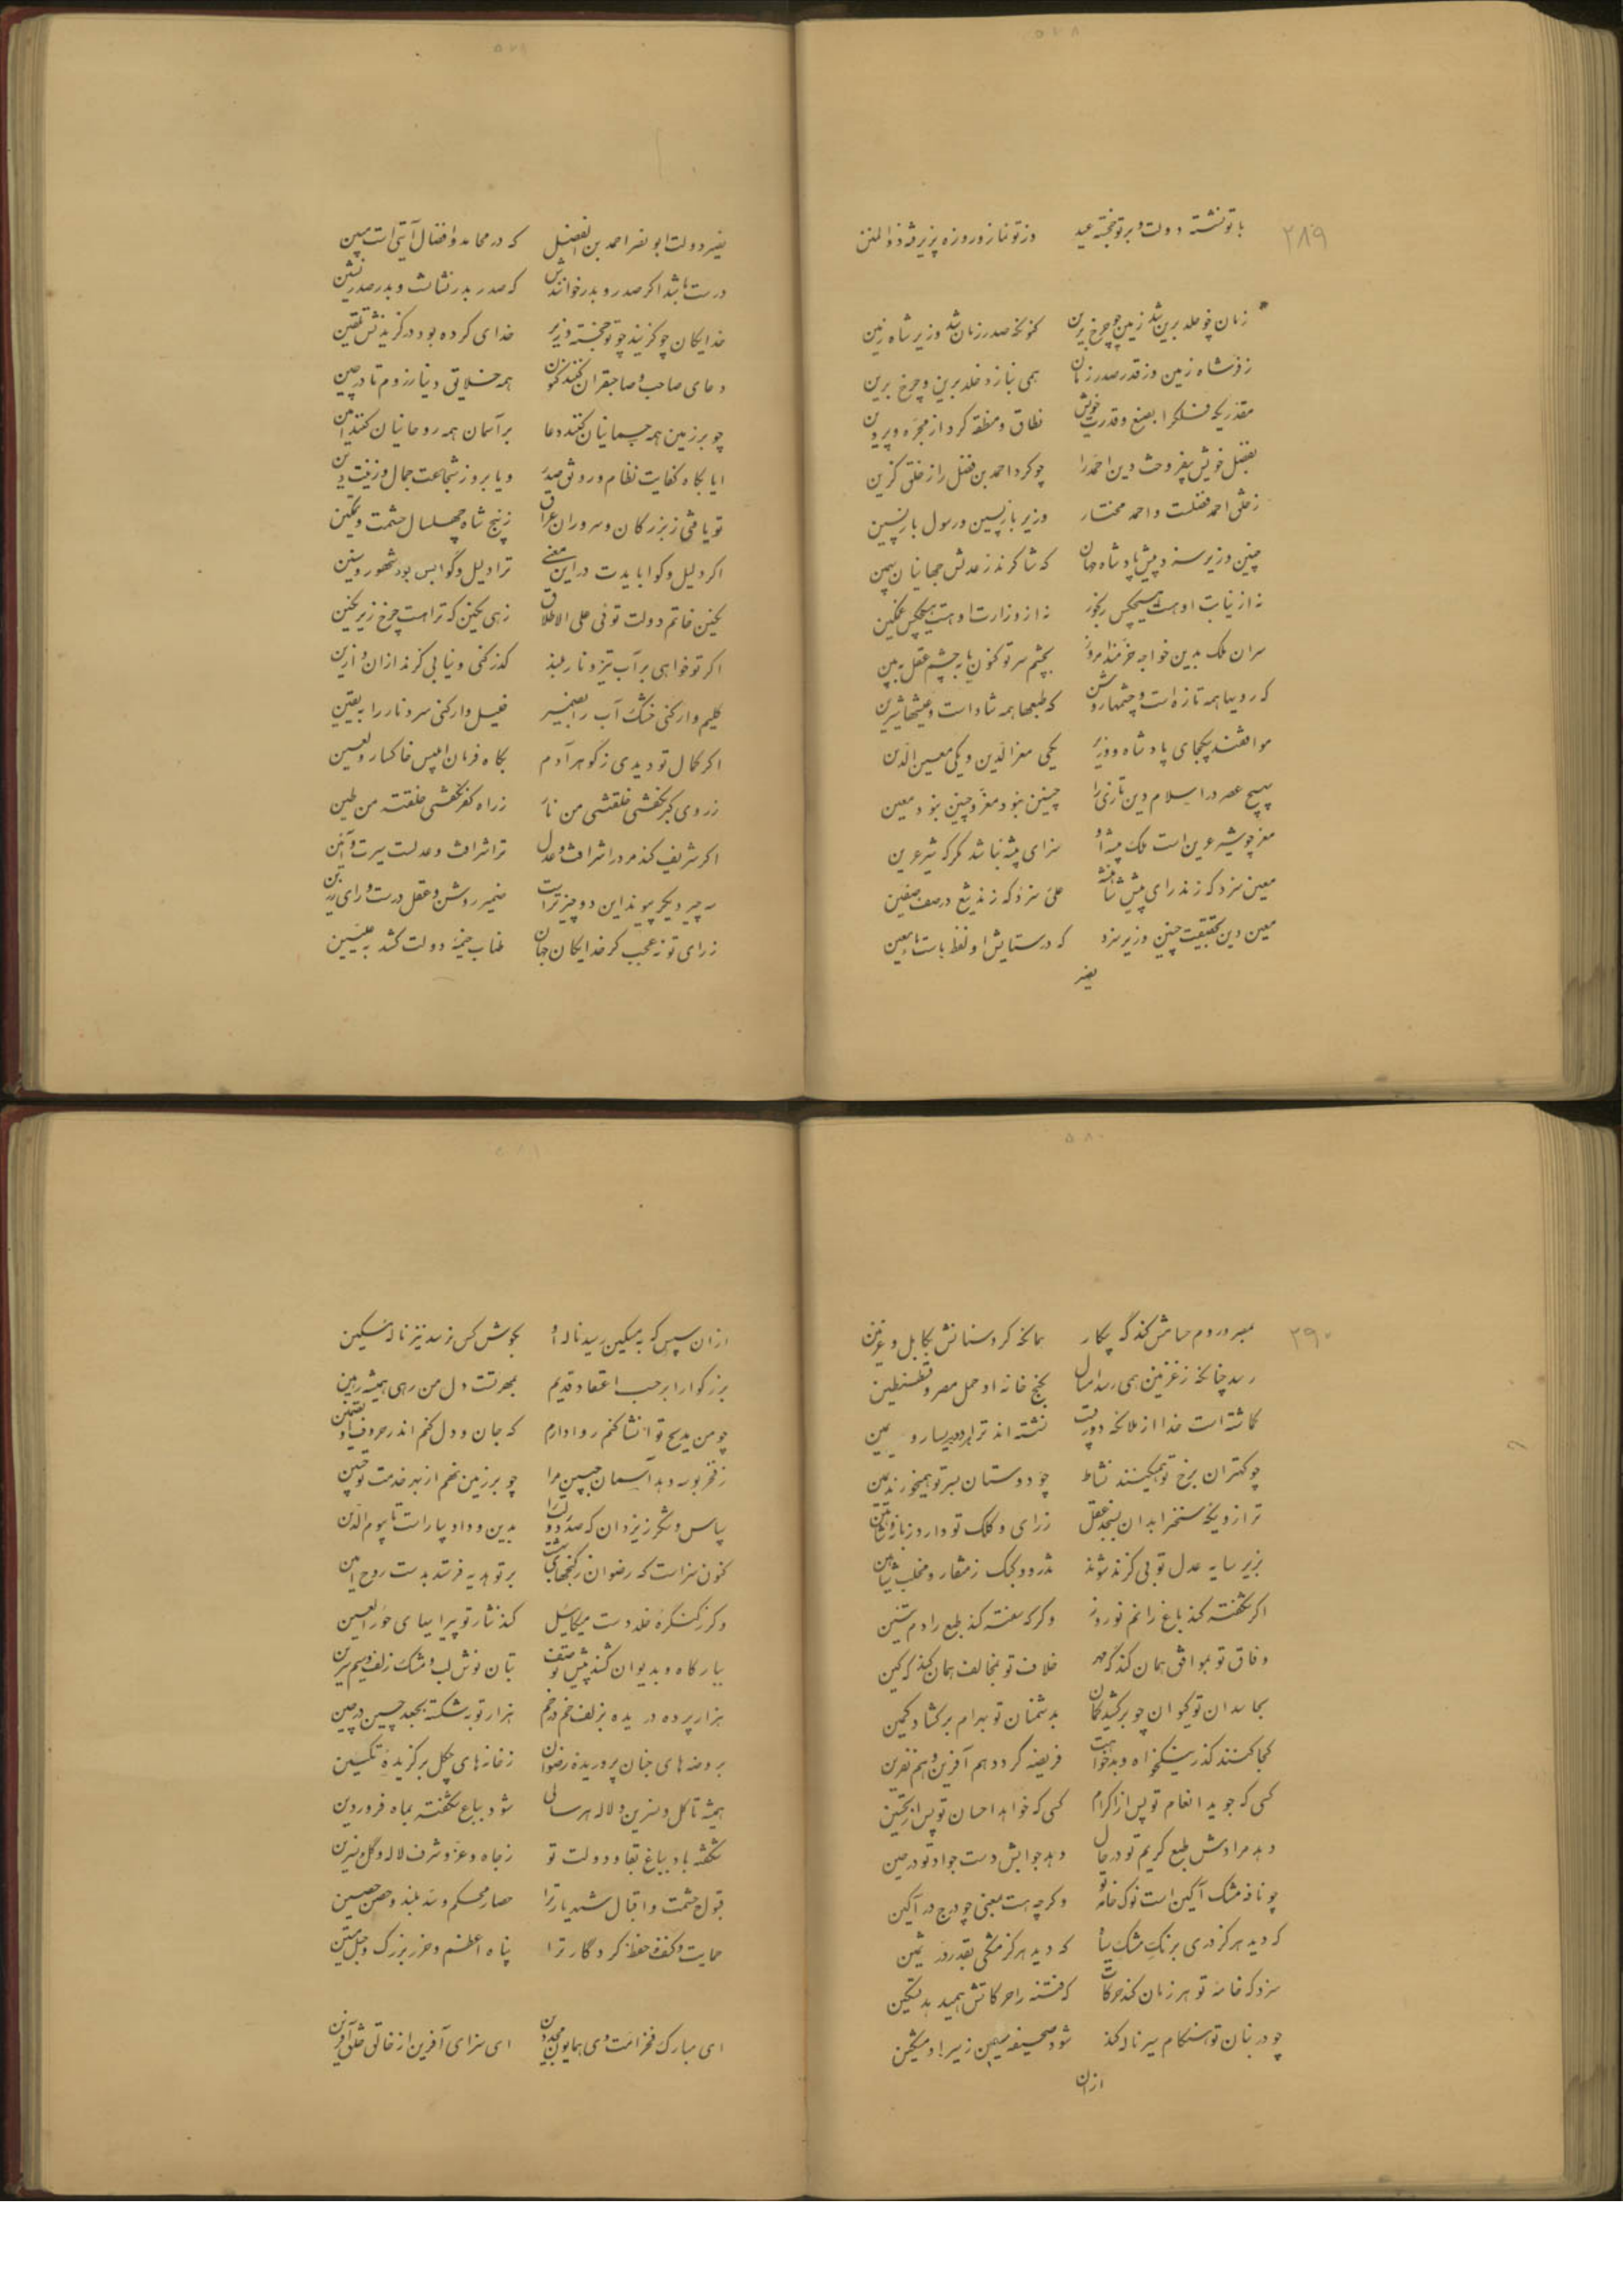 ۲۸۹
با تو نشسته دولت و بر تو خجسته عید وز تو نماز و روزه پذیرفته ذوالمنن
زمان چو خلد برین شد زمین چو چرخ برین کنونکه صدر زمان شد وزیر شاه زمین
ز فر شاه زمین وز قدر صدر زمان همی بنازد خلد برین و چرخ برین
مقدریکه فلکرا بصنع و قدرت خویش نطاق و منطقه کرد از مجره و پروین
بفضل خویش بیفروخت دین احمد را چو کرد احمد بن فضل را ز خلق گزین
ز خلق احمد فضلست و احمد مختار وزیر بازپسین و رسول بازپسین
چنین وزیر سزد پیش پادشاه جهان که شاکرند ز عدلش جهانیان
نه از نیابت او هست هیچکس رنجور نه از وزارت او هست هیچکس غمگین
سران ملک بدین خواجه خرمند امروز بچشم سر تو کنون یا بچشم عقل ببین
که رویها همه تازه است و چشمها روشن که طبعها همه شاد است و عیشها شیرین
موافقند بیکجای پادشاه و وزیر یکی معزالدین و یکی معین الدین
بهیچ عصر در اسلام دین تازی را چنین نبود معز و چنین نبود معین
معز چو شیر عرین است ملک بیشه او سزای بیشه نباشد مگر که شیر عرین
معین سزد که زند رای پیش شاهنشه علی سزد که زند تیغ در صف صفین
معین دین بحقیقت چنین وزیر سزد که در ستایش او لفظ ماست ماء معین
نصیر دولت ابونصر احمد بن الفضل که در محامد و افضال آیتی است مبین
درست باشد اگر صدر و بدر خوانندش که صدر بدر نشانست و بدر صدرنشین
خدایگان چو گزیند چو تو خجسته وزیر خدای کرده بود در گزینش تلقین
دعای صاحب و صاحبقران کنند کنون همه خلایق دنیا ز روم تا در چین
چو بر زمین همه جسمانیان کنند دعا بر آسمان همه روحانیان کنند آمین
ایا بگاه کفایت نظام و رونق صدر و یا بروز شجاعت جمال و زینت زین
تو یافتی ز بزرگان و سروران عراق ز پنج شاه چهلسال حشمت و تمکین
اگر دلیل و گوا بایدت در این معنی ترا دلیل و گوا بس بود شهور و سنین
نگین خاتم دولت توئی علی الاطلاق زهی نگین که ترا هست چرخ زیر نگین
اگر تو خواهی بر آب تیز و نار بلند گذر کنی و نیابی گزند از آن و ازین
کلیم وار کنی خشک آب را بضمیر خلیل وار کنی سرد نار را بیقین
اگر کمال تو دیدی ز گوهر آدم بگاه فرمان ابلیس خاکسار و لعین
ز روی کبر نگفتی خلقتنی من نار ز راه کفر نگفتی خلقته من طین
اگر شریف کند مرد را شرافت و عدل ترا شرافت و عدلست سیرت و آئین
سه چیز دیگر پیوند این دو چیز تراست ضمیر روشن و عقل درست و رای رزین
ز رای تو نه عجب گر خدایگان جهان طناب خیمه دولت کشد به علیین
۲۹۰
بمصر و روم حسامش کند گه پیکار همانکه کرد سنانش بکابل و غزنین
رسد چنانکه ز غزنین همی رسد امسال بگنج خانه او حمل مصر و قسطنطین
گماشته است خدا از ملائکه دو رقیب نشسته اند ترا بر یسار و یمین
چو کهتران برخ تو همیکنند نشاط چو دوستان بسر تو همیخورند یمین
زیر سایه عدل تو بی گزند شوند تذرو و کبک ز منقار و مخلب شاهین
اگر شکفته کند باغ را نم نوروز
وفاق تو بموافق همان کند گه مهر خلاف تو بمخالف همان کند گه کین
بحاسدان تو کیوان چو برکشید کمان بدشمنان تو بهرام برگشاد کمین
کجا کنند گذر نیکخواه و بدخواهت فریضه گردد هم آفرین و هم نفرین
کسی که جوید انعام تو پس از اکرام کسی که خواهد احسان تو پس از تحسین
دهد مرادش طبع کریم تو در حال دهد جوابش دست جواد تو در حین
چو نافه مشک آگین است نوک خامه تو وگرچه هست بمعنی چو درج در آگین
که دید هرگز دری برنگ مشک سیاه که دید هرگز مشکی بقدر در ثمین
سزد که خامه تو هر زمان کند حرکات که فتنه را حرکاتش همی دهد تسکین
چو در بنان تو هنگام سیر ناله کند شود صحیفه سیمین زیر او مشکین
ازان
ازان سپس که به مسکین رسید ناله او بگوش کس نرسد نیز ناله مسکین
بزرگوارا بر حسب اعتقاد قدیم بمهر تست دل من رهی همیشه رهین
چو من مدیح تو انشا کنم روا دارم که جان و دل کنم اندر حروف او تضمین
ز فخر بوسه دهد آسمان جبین مرا چو بر زمین نهم از بهر خدمت تو جبین
سپاس و شکر ز یزدان که صدر دو بدین و داد بیاراست تا بیوم الدین
کنون سزاست که رضوان ز گنجهای بهشت بر تو هدیه فرستد بدست روح امین
وگر ز کنگره خلد دست میکائیل کند نثار تو پیرایهای حورالعین
ببارگاه و بدیوان کشند پیش تو صف بتان نوش لب و مشک زلف و سیم سرین
هزار پرده دریده بزلف خم در خم هزار توبه شکسته بجعد چین در چین
بروضه های جنان پروریده رضوان ز خانه های چگل برگزیده تکسین
همیشه تا گل و نسرین و لاله هر سالی شود بباغ شکفته بماه فروردین
شکفته باد بباغ بقا و دولت تو ز جاه و عز و شرف لاله و گل و نسرین
قبول حشمت و اقبال شهریار ترا حصار محکم و سد بلند و حصن حصین
حمایت و کنف و حفظ کردگار ترا پناه اعظم و حرز بزرگ و حبل متین
ای مبارک فخر امت وی همایون مجد دین ای سزای آفرین از خالق خلق آفرین